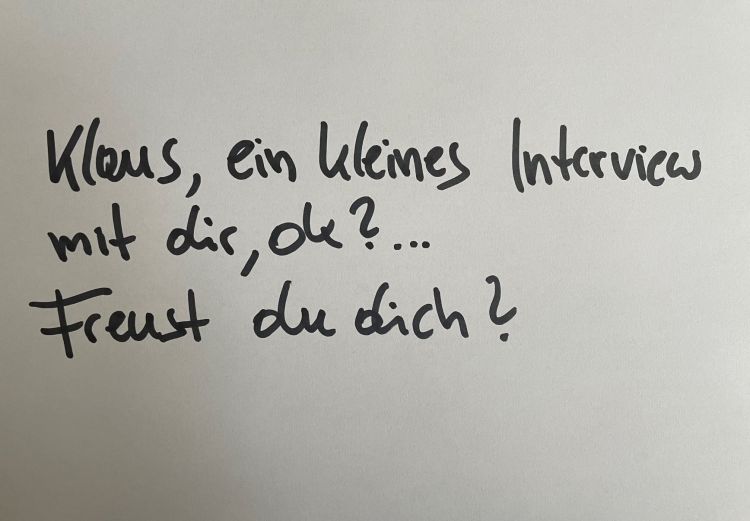 Klaus, ein kleines Interview
mit dir, ok?...
Freust du dich?